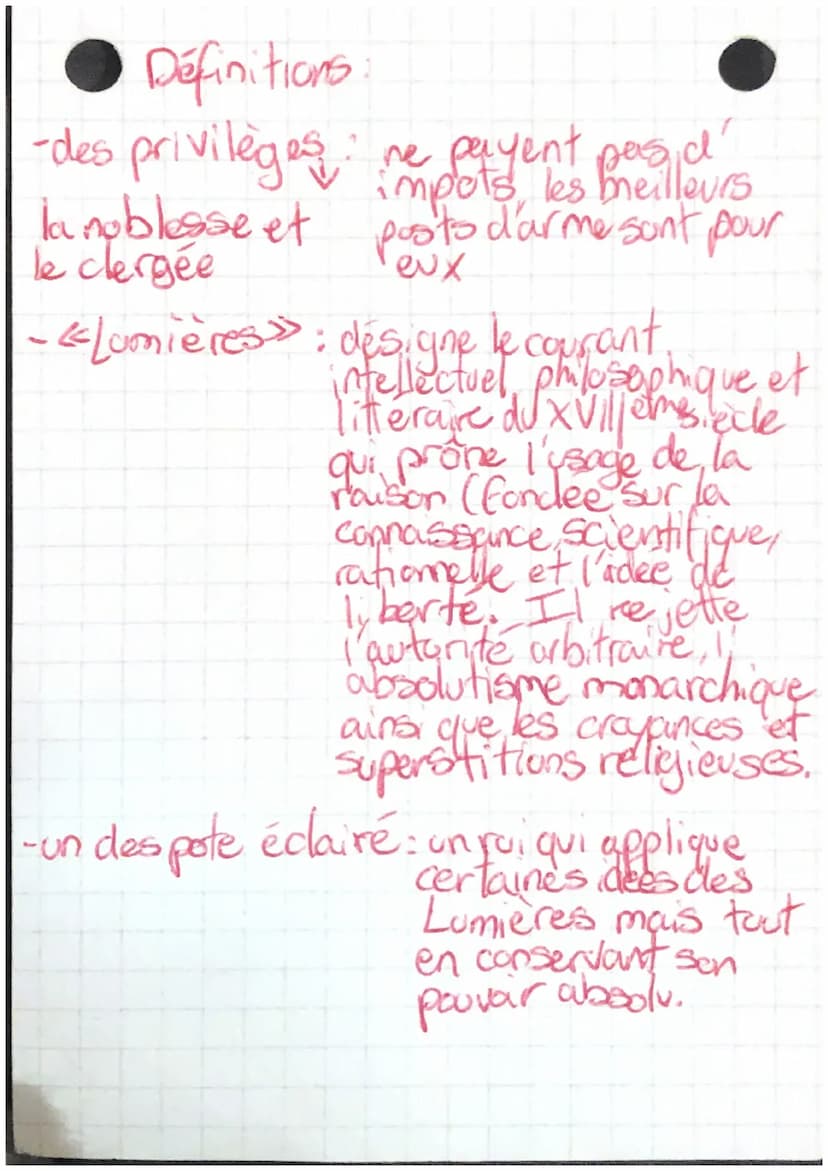 Définitions:
-des privilèges : ne payent pas d'
↓ impots, les meilleurs
la noblesse et posts d'arme sont pour
le clergée eux
- «Lumières» : désigne le courant
intellectuel philosophique et
littéraire du XVIIIème siècle
qui prône l'usage de la
raison (fondée sur la
connaissance scientifique,
rationnelle et l'idée de
liberté. Il rejette
l'autorité arbitraire, l'
absolutisme monarchique
ainsi que les croyances et
superstitions religieuses.
-un despote éclairé: un roi qui applique
certaines idées des
Lumières mais tout
en conservant son
pouvoir absolu.